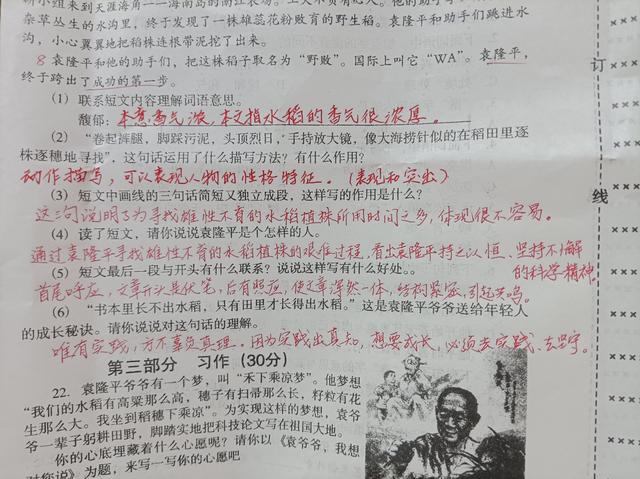 新小组来到天涯海角——海南岛的南江农场。工夫不负有心人。他的助手
杂草丛生的水沟里，终于发现了一株雄蕊花粉败育的野生稻。袁隆平和助手们跳进水
沟，小心翼翼地把稻株连根带泥挖了出来。
8 袁隆平和他的助手们，把这株稻子取名为“野败”。国际上叫它“WA”。袁隆平，
终于跨出了成功的第一步。
(1) 联系短文内容理解词语意思。
馥郁：本意香气浓，本文指水稻的香气很浓厚。
(2) “卷起裤腿，脚踩污泥，头顶烈日，手持放大镜，像大海捞针似的在稻田里逐
株逐穗地寻找”，这句话运用了什么描写方法？有什么作用？
动作描写，可以表现人物的性格特征。（表现和突出）
(3) 短文中画线的三句话简短又独立成段，这样写的作用是什么？
这三句说明了为寻找雄性不育的水稻植株所用时间之多，体现很不容易。
(4) 读了短文，请你说说袁隆平是个怎样的人。
通过袁隆平寻找雄性不育的水稻植株的艰难过程，看出袁隆平持之以恒、坚持不懈
(5) 短文最后一段与开头有什么联系？说说这样写有什么好处。。
的科学精神。
首尾呼应，文章开头是伏笔，后有照应，使文章浑然一体，结构紧密，引起共鸣。
(6) “书本里长不出水稻，只有田里才长得出水稻。”这是袁隆平爷爷送给年轻人
的成长秘诀。请你说说对这句话的理解。
唯有实践，方不辜负真理。因为实践出真知，想要成长，必须去实践、去坚守。
第三部分 习作（30分）
22. 袁隆平爷爷有一个梦，叫“禾下乘凉梦”。他梦想
“我们的水稻有高粱那么高，穗子有扫帚那么长，籽粒有花
生那么大。我坐到稻穗下乘凉”。为实现这样的梦想，袁爷
爷一辈子躬耕田野，脚踏实地把科技论文写在祖国大地。
你的心底埋藏着什么心愿呢？请你以《袁爷爷，我想
对您说》为题，来写一写你的心愿吧
订
线